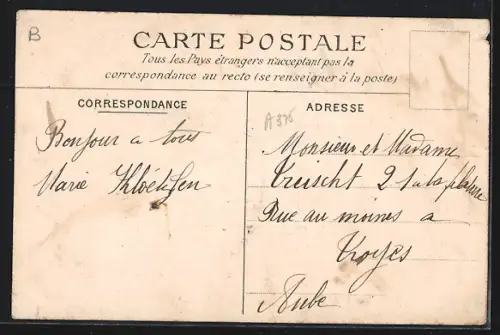 B
CARTE POSTALE
Tous les Pays étrangers n'acceptant pas la
correspondance au recto (se renseigner à la poste)
CORRESPONDANCE
Bonjour a tous
Marie
ADRESSE
A375
Monsieur et Madame
21 a la
Rue au moines a
Troyes
Aube